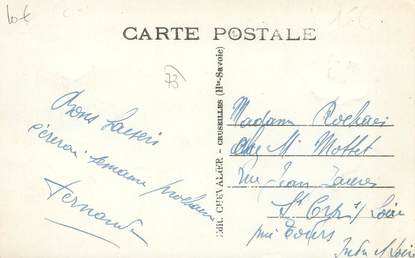 10€
CARTE POSTALE
73
Bons baisers
semaine prochaine
Fernande
Edit. CHEVALIER - CRUSEILLES (Hte-Savoie)
Madame Rochais
chez Mr Mottet
rue Jean Jaurès
St Cyr s/ Loire
près Tours
Indre et Loire